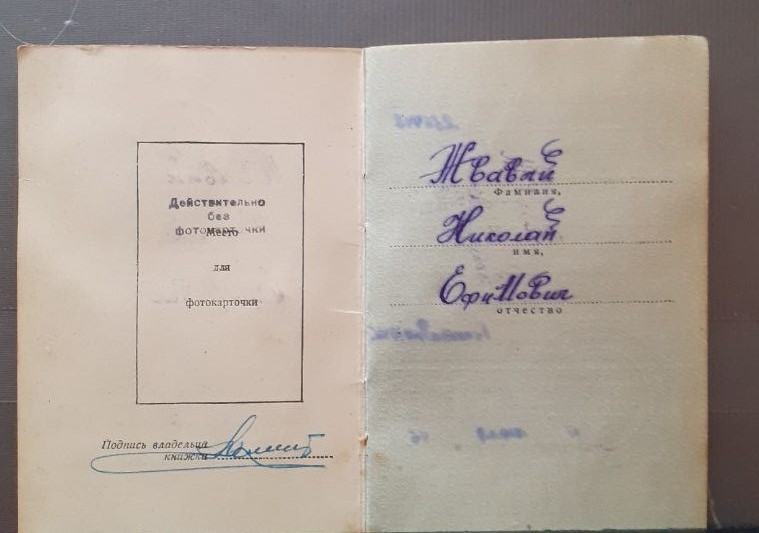 Действительно
без
фотокарточки
Место
для
фотокарточки
Подпись владельца
книжки
Фамилия,
Николай
имя,
Ефимович
отчество